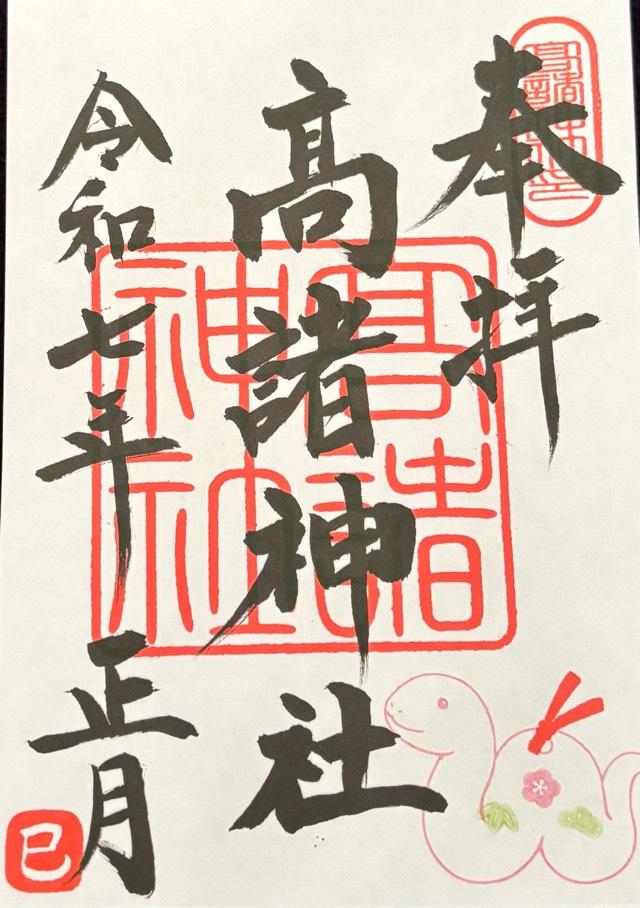 奉拝
高諸神社
令和七年 正月
高諸神社
巳